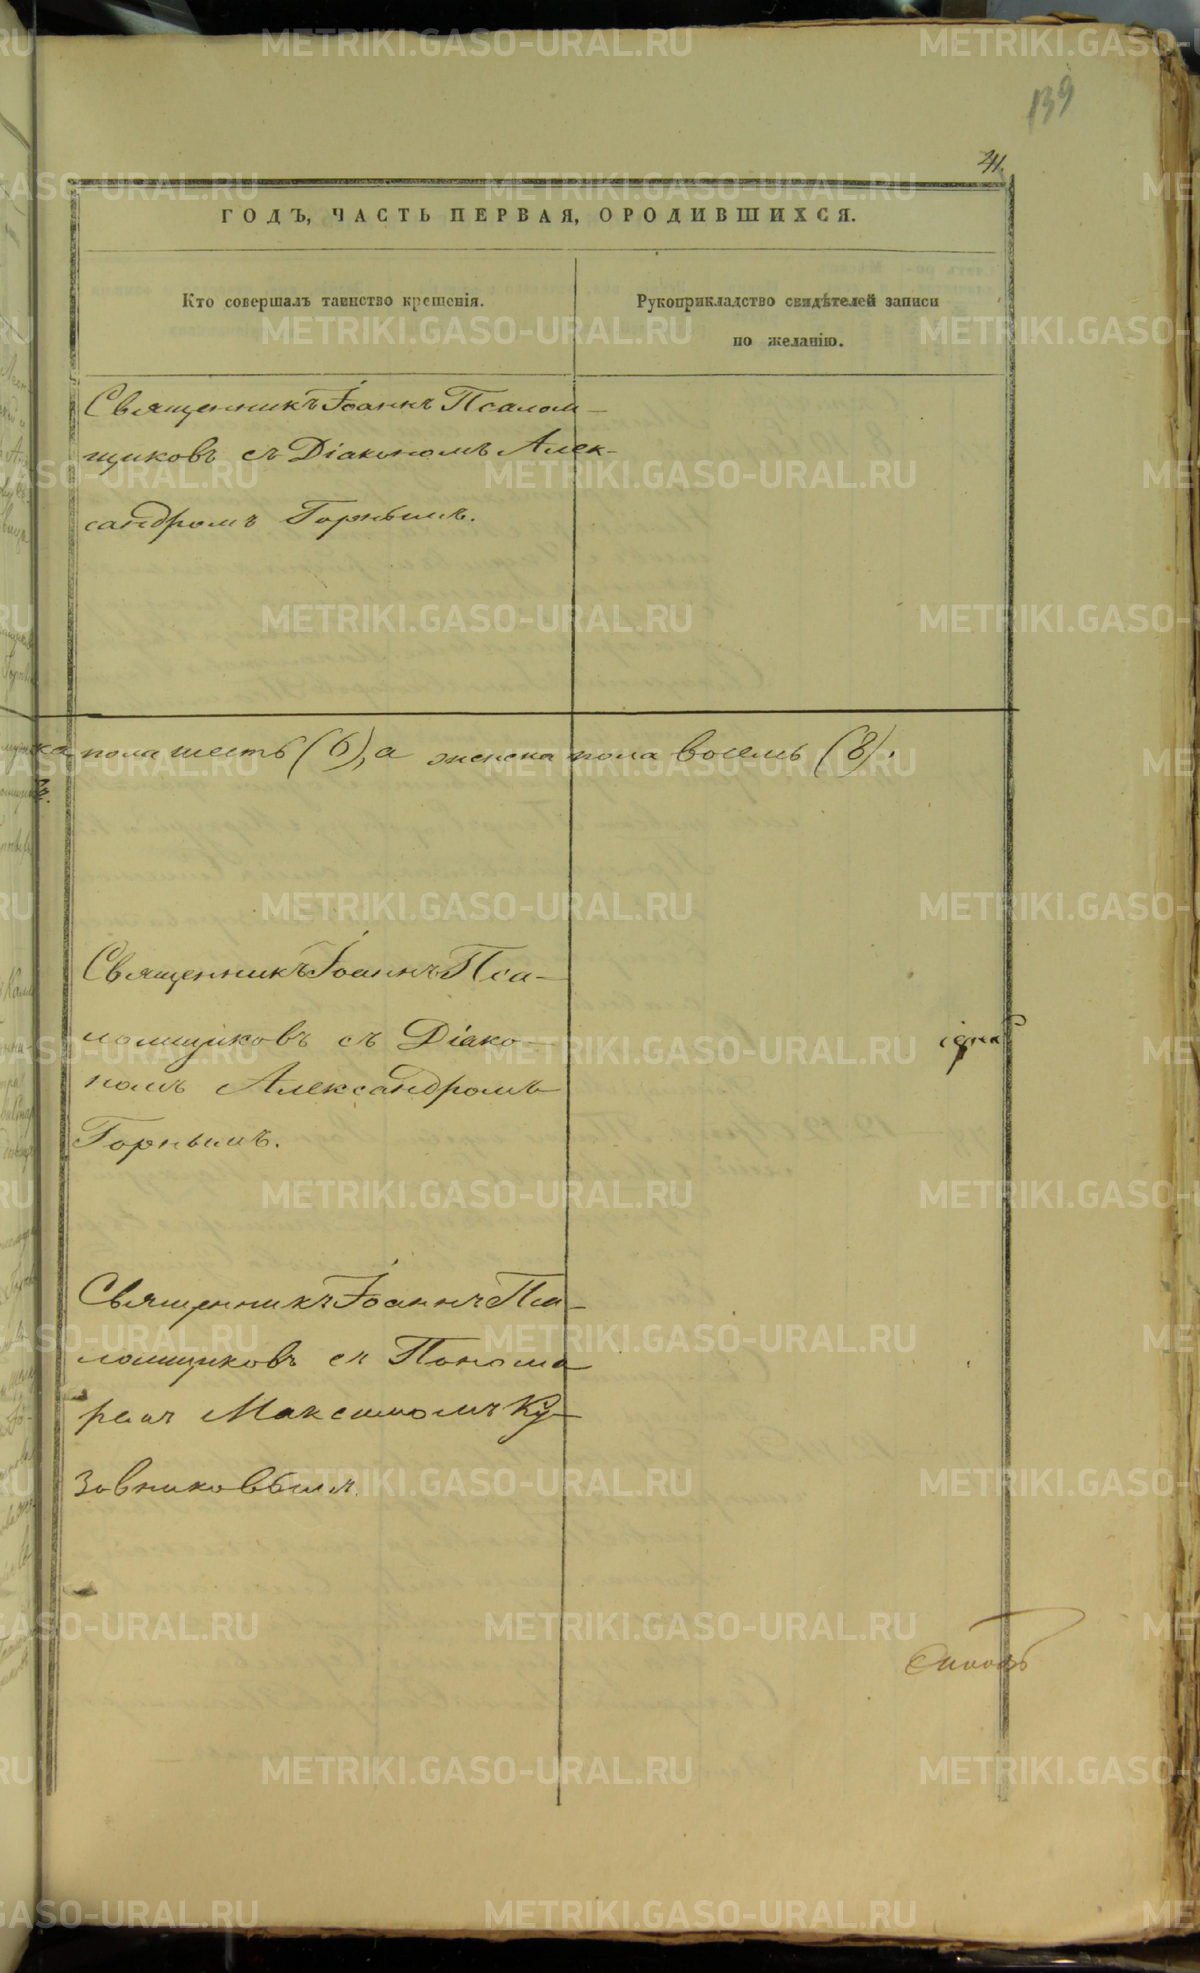 139
41.
ГОДЪ, ЧАСТЬ ПЕРВАЯ, ОРОДИВШИХСЯ.
Кто совершалъ таинство крещенія.
Рукоприкладство свидѣтелей записи
по желанію.
Священникъ Іоаннъ Псалом-
щиковъ съ Діакономъ Алек-
сандромъ Горнымъ.
ка пола шесть (6), а женска пола восемь (8).
Священникъ Іоаннъ Пса-
ломщиковъ съ Діако-
номъ Александромъ
Горнымъ.
Священникъ Іоаннъ Пса-
ломщиковъ съ Понома
ремъ Максимомъ Ку-
зовниковымъ.
METRIKI.GASO-URAL.RU